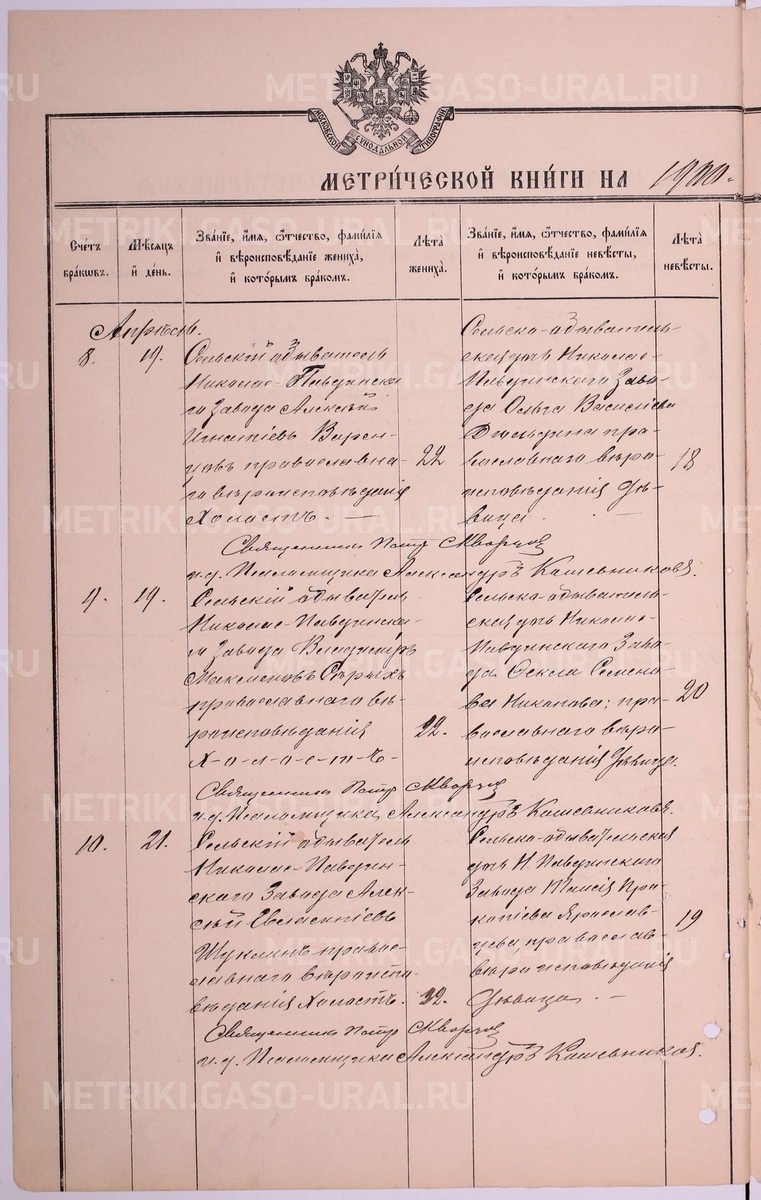 МОСКОВСКОЙ СѴНОДАЛЬНОЙ ТИПОГРАФІИ
МЕТРИ́ЧЕСКОЙ КНИ́ГИ НА 1900.
Сче́тъ бра́ковъ.
Мѣ́сяцъ и҆ де́нь.
Зва́нїе, и҆́мя, ѻ҆́тчество, фами́лїя и҆ вѣроисповѣ́данїе жениха̀, и҆ кото́рымъ бра́комъ.
Лѣ́та жениха̀.
Зва́нїе, и҆́мя, ѻ҆́тчество, фами́лїя и҆ вѣроисповѣ́данїе невѣ́сты, и҆ кото́рымъ бра́комъ.
Лѣ́та невѣ́сты.
Апрѣль.
8.
19.
Сельскій обыватель
Николае-Павдинска-
го Завода Алексѣй
Игнатіевъ Варен-
цовъ православна-
го вѣроисповѣданія
Холостъ. —
22
Сельско-обыватель-
ская дочь Николае-
Павдинскаго Заво-
да Ольга Василіева
пра-
вославнаго вѣро-
исповѣданія дѣ-
вица. —
18
Священникъ Петръ Скворцов
и.д. Псаломщика Александръ Кашевниковъ.
9.
19.
Сельскій обыватель
Николае-Павдинска-
го Завода Владиміръ
Максимовъ Сѣрыхъ
православнаго вѣ-
роисповѣданія
Х-о-л-о-с-т-ъ-
22.
Сельско-обыватель-
ская дочь Николае-
Павдинскаго Заво-
да Фекла Семено-
ва Никонова; пра-
вославнаго вѣро-
исповѣданія дѣвица.
20
Священникъ Петр Скворцов
и.д. Псаломщика Александръ Кашевниковъ.
10.
21.
Сельскій обыватель
Николае-Павдин-
скаго Завода Алек-
сѣй Евлампіевъ
Шуклинъ правос-
лавнаго вѣроиспо-
вѣданія Холостъ.
22.
Сельско-обывательская
дочь Н. Павдинскаго
Завода Таисія Про-
копіева Ярослав-
цева православ-
вѣроисповѣданія
дѣвица. —
19
Священникъ Петр Скворцов
и.д. Псаломщика Александръ Кашевников.
METRIKI.GASO-URAL.RU